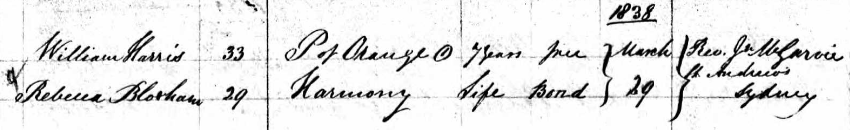 1838
William Harris 33 P of Orange @ 7 years free } March } Rev. Jn McGarvie
St. Andrew's
Rebecca Bloxham 29 Harmony Life Bond } 29 } Sydney